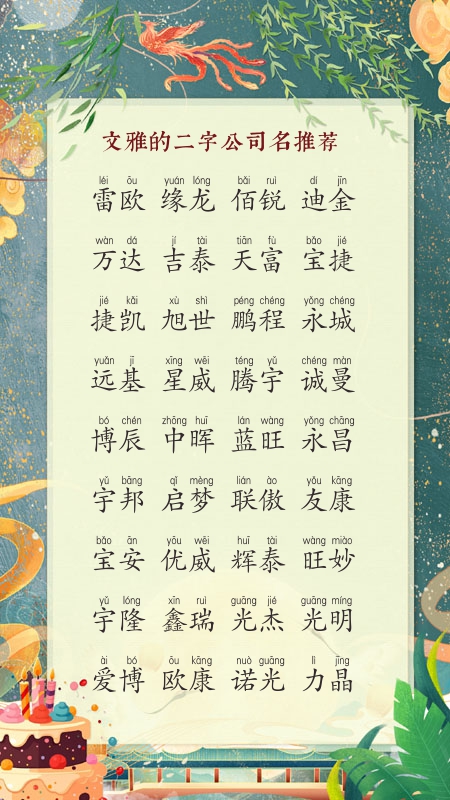 文雅的二字公司名推荐
léi ōu yuán lóng bǎi ruì dí jīn
雷欧 缘龙 佰锐 迪金
wàn dá jí tài tiān fù bǎo jié
万达 吉泰 天富 宝捷
jié kǎi xù shì péng chéng yǒng chéng
捷凯 旭世 鹏程 永城
yuǎn jī xīng wēi téng yǔ chéng màn
远基 星威 腾宇 诚曼
bó chén zhōng huī lán wàng yǒng chāng
博辰 中晖 蓝旺 永昌
yǔ bāng qǐ mèng lián ào yǒu kāng
宇邦 启梦 联傲 友康
bǎo ān yōu wēi huī tài wàng miào
宝安 优威 辉泰 旺妙
yǔ lóng xīn ruì guāng jié guāng míng
宇隆 鑫瑞 光杰 光明
ài bó ōu kāng nuò guāng lì jīng
爱博 欧康 诺光 力晶